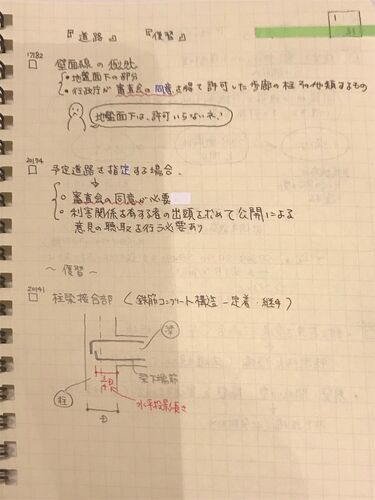 『道路』 『復習』
1
17182
壁面線の
・地盤面下の部分
・行政庁が審査会の同意を得て許可した歩廊の柱その他類するもの
地盤面下は、許可いらないネ!
20174
予定道路を指定する場合、
・審査会の同意が必要
・利害関係を有する者の出頭を求めて公開による
意見の聴取を行う必要あり
〜復習〜
20141
柱梁接合部 (鉄筋コンクリート構造-定着・継手)
梁
梁下端筋
柱
水平投影長さ
D